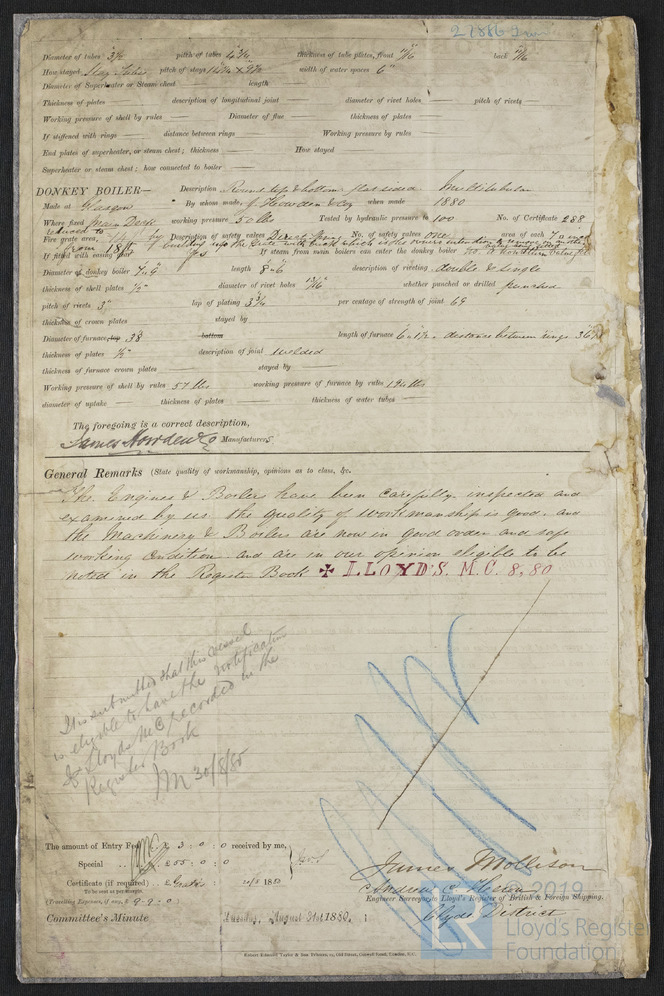 27886 Iron
Diameter of tubes 3½ pitch of tubes 4¾ thickness of tube plates, front 11/16 back 11/16
How stayed Stay Tubes pitch of stays width of water spaces 6"
Diameter of Superheater or Steam chest — length —
Thickness of plates — description of longitudinal joint — diameter of rivet holes — pitch of rivets —
Working pressure of shell by rules — Diameter of flue — thickness of plates —
If stiffened with rings — distance between rings — Working pressure by rules —
End plates of superheater, or steam chest; thickness — How stayed —
Superheater or steam chest; how connected to boiler —
DONKEY BOILER— Description Round top & bottom flat sided Multitubular
Made at Glasgow By whom made, J Howden & Coy when made 1880
Where fixed Main Deck working pressure 50 lbs Tested by hydraulic pressure to 100 No. of Certificate 288
reduced to
Fire grate area, Description of safety valves Direct Spring No. of safety valves one area of each
from 18 ft by building up the grate with brick which is the owners intention to
If fitted with easing gear yes If steam from main boilers can enter the donkey boiler No.
Diameter of donkey boiler 7'.9" length 8'.6" description of riveting double & single
thickness of shell plates ½" diameter of rivet holes 13/16" whether punched or drilled punched
pitch of rivets 3" lap of plating 3¾ per centage of strength of joint 69
thickness of crown plates stayed by
Diameter of furnace, top 38 bottom length of furnace 6'.1½ distance between rings 36½
thickness of plates ½" description of joint welded
thickness of furnace crown plates — stayed by —
Working pressure of shell by rules 57 lbs working pressure of furnace by rules 196 lbs
diameter of uptake — thickness of plates — thickness of water tubes —
The foregoing is a correct description,
James Howden & Co Manufacturers
General Remarks (State quality of workmanship, opinions as to class, &c.
The Engines & Boilers have been carefully inspected and
examined by us the quality of workmanship is good. and
the Machinery & Boilers are now in good order and safe
working condition. and are in our opinion eligible to be
noted in the Register Book ✠ LLOYD'S. M.C. 8, 80
It is submitted that this vessel
is eligible to have the notification
of Lloyds MC recorded in the
Register Book
JM 30/8/80
The amount of Entry Fee £ 3 : 0 : 0 received by me,
Special .. £ 55 : 0 : 0
Certificate (if required) .. £ Gratis 1880
To be sent as per margin.
(Travelling Expenses, if any, £ 9-9-0)
James Mollison
Andrew C Heron
Engineer Surveyor to Lloyd's Register of British & Foreign Shipping.
Clyde District
Committee's Minute Tuesday, August 31st 1880.
© 2019
Lloyd's Register
Foundation
LR